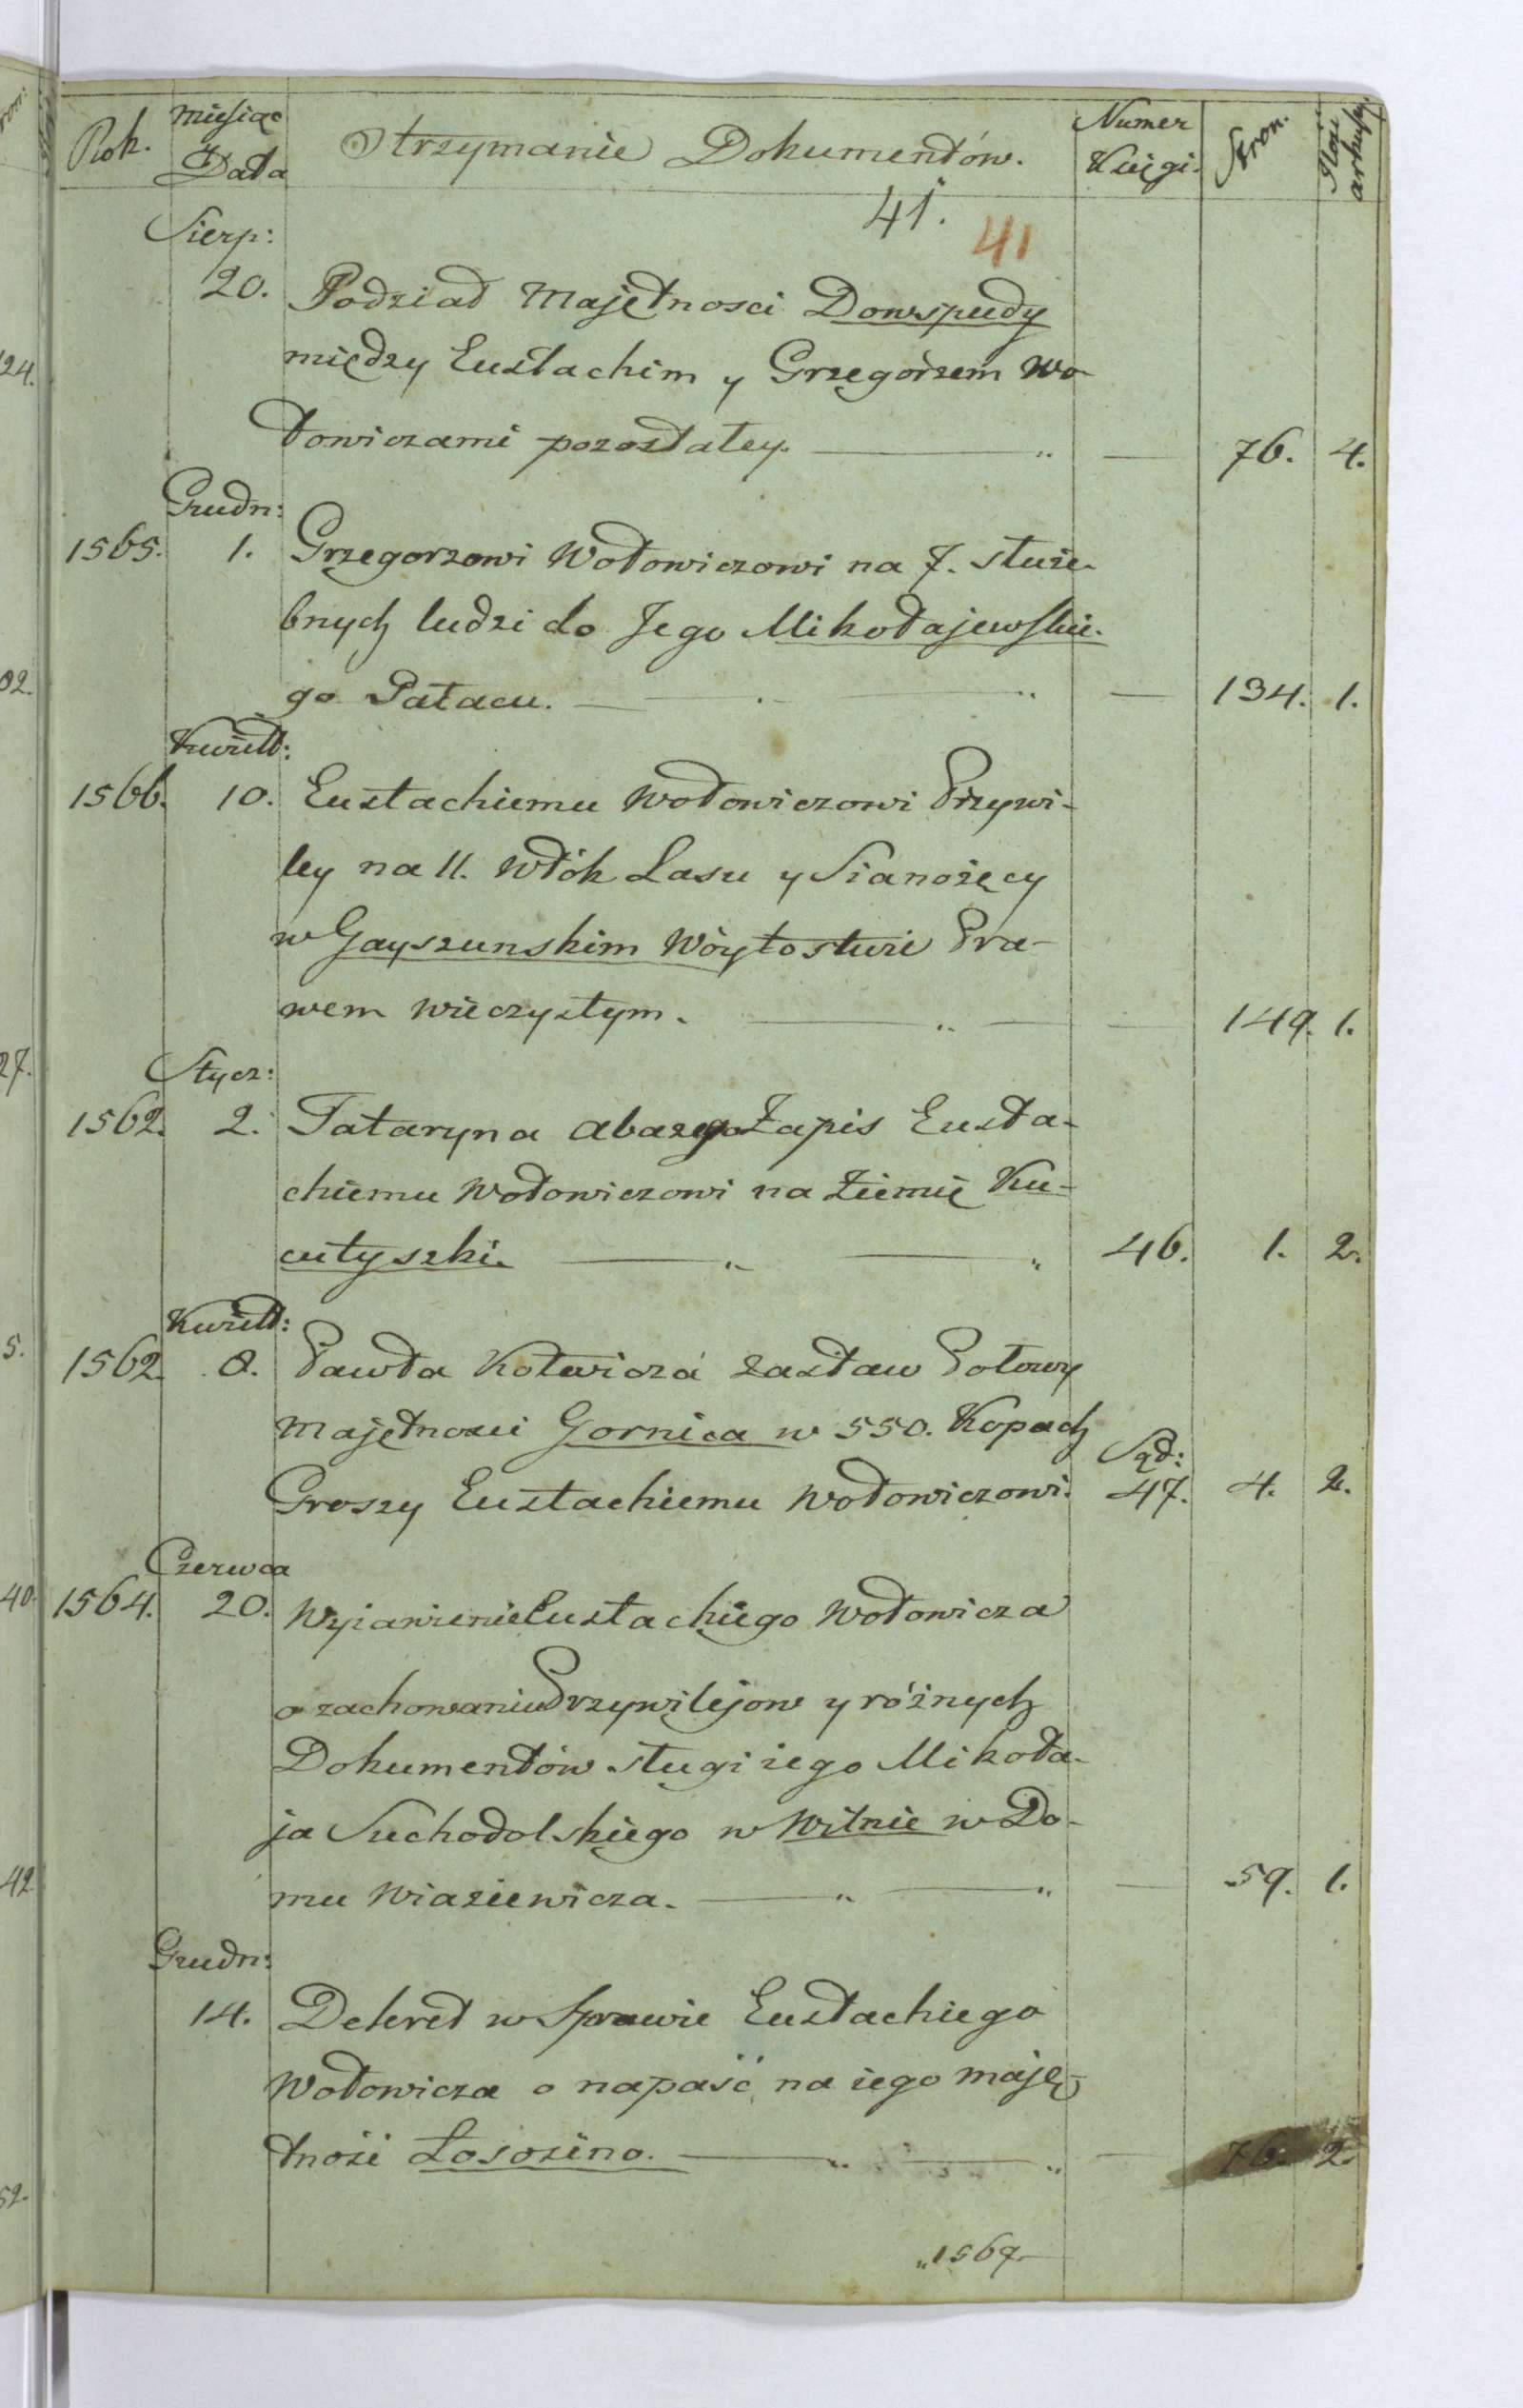 Rok. Miesiąc i Data Otrzymanie Dokumentów. Numer Księgi. Stron. Ilość arkuszy
41. 41
Sierp:
20. Podział Majętnosci Dowspudy
między Eustachim y Grzegorzem Wo-
łowiczami pozostałey. 76. 4.
Grudn:
1565. 1. Grzegorzowi Wołowiczowi na 7. służe-
bnych ludzi do Jego Mikołajewskie-
go Pałacu. 134. 1.
Kwiet:
1566. 10. Eustachiemu Wołowiczowi Przywi-
ley na 11. Włók Lasu y Sianożęcy
w Gayszunskim Wóytostwie Pra-
wem Wieczystym. 149. 1.
Stycz:
1562. 2. Tataryna Abazego Zapis Eusta-
chiemu Wołowiczowi na Ziemię Ku-
cutyszki. 46. 1. 2.
Kwiet:
1562. 8. Pawła Kotwicza Zastaw Połowy
Majętnosci Gornica w 550. Kopach
Sąd:
Groszy Eustachiemu Wołowiczowi. 47. 4. 2.
Czerwca
1564. 20. Wyiawienie Eustachiego Wołowicza
o zachowaniu Przywilejow y różnych
Dokumentów sługi iego Mikoła-
ja Suchodolskiego w Wilnie w Do-
mu Wiaziewicza. 59. 1.
Grudn:
14. Dekret w Sprawie Eustachiego
Wołowicza o napaść na iego maję-
tność Łosośino. 76. 2.
„1567.